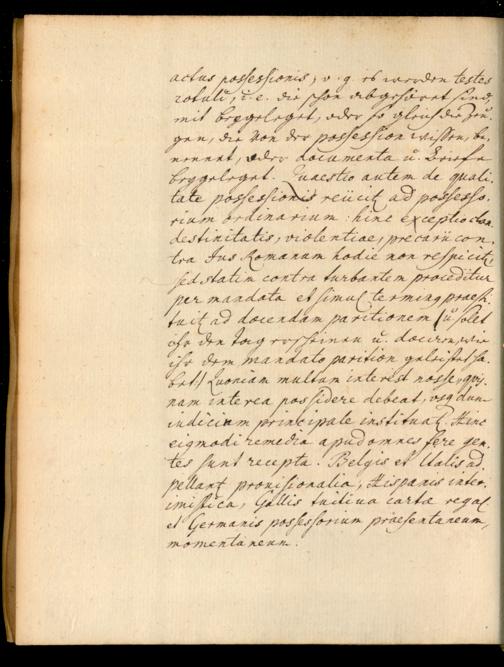 actus possessionis, v. g. es werden testes
rotuli, i. e. die schon abgehöret sind,
mit beygeleget, oder so gleich die Zeu,
gen, die von der possession wissen, be,
nennet, oder documenta u. Briefe
beygeleget. Quaestio autem de quali
tate possessionis reiicit ad possesso,
rium ordinarium: hinc exceptio clan
destinitatis, violentiae, precarii con,
tra Jus Romanum hodie non respicit,
sed statim contra turbantem proceditur
per mandata et simul terminq praesti
tuit ad docendam paritionem (u solet
ihr den Tag erscheinen u. dociren, wie
ihr dem mandato parition geleistet ha
bet) Quoniam multum interest nosse, quis,
nam interea possidere debeat, usq dum
iudicium principale instituat. Hinc
eiqmodi remedia apud omnes fere gen,
tes sunt recepta. Belgis et Italis ad
pellant provisionalia, Hispanis inter,
imistica, Gallis tuitiva cartae regal
et Germanis possessorium praesentaneum,
momentaneum.